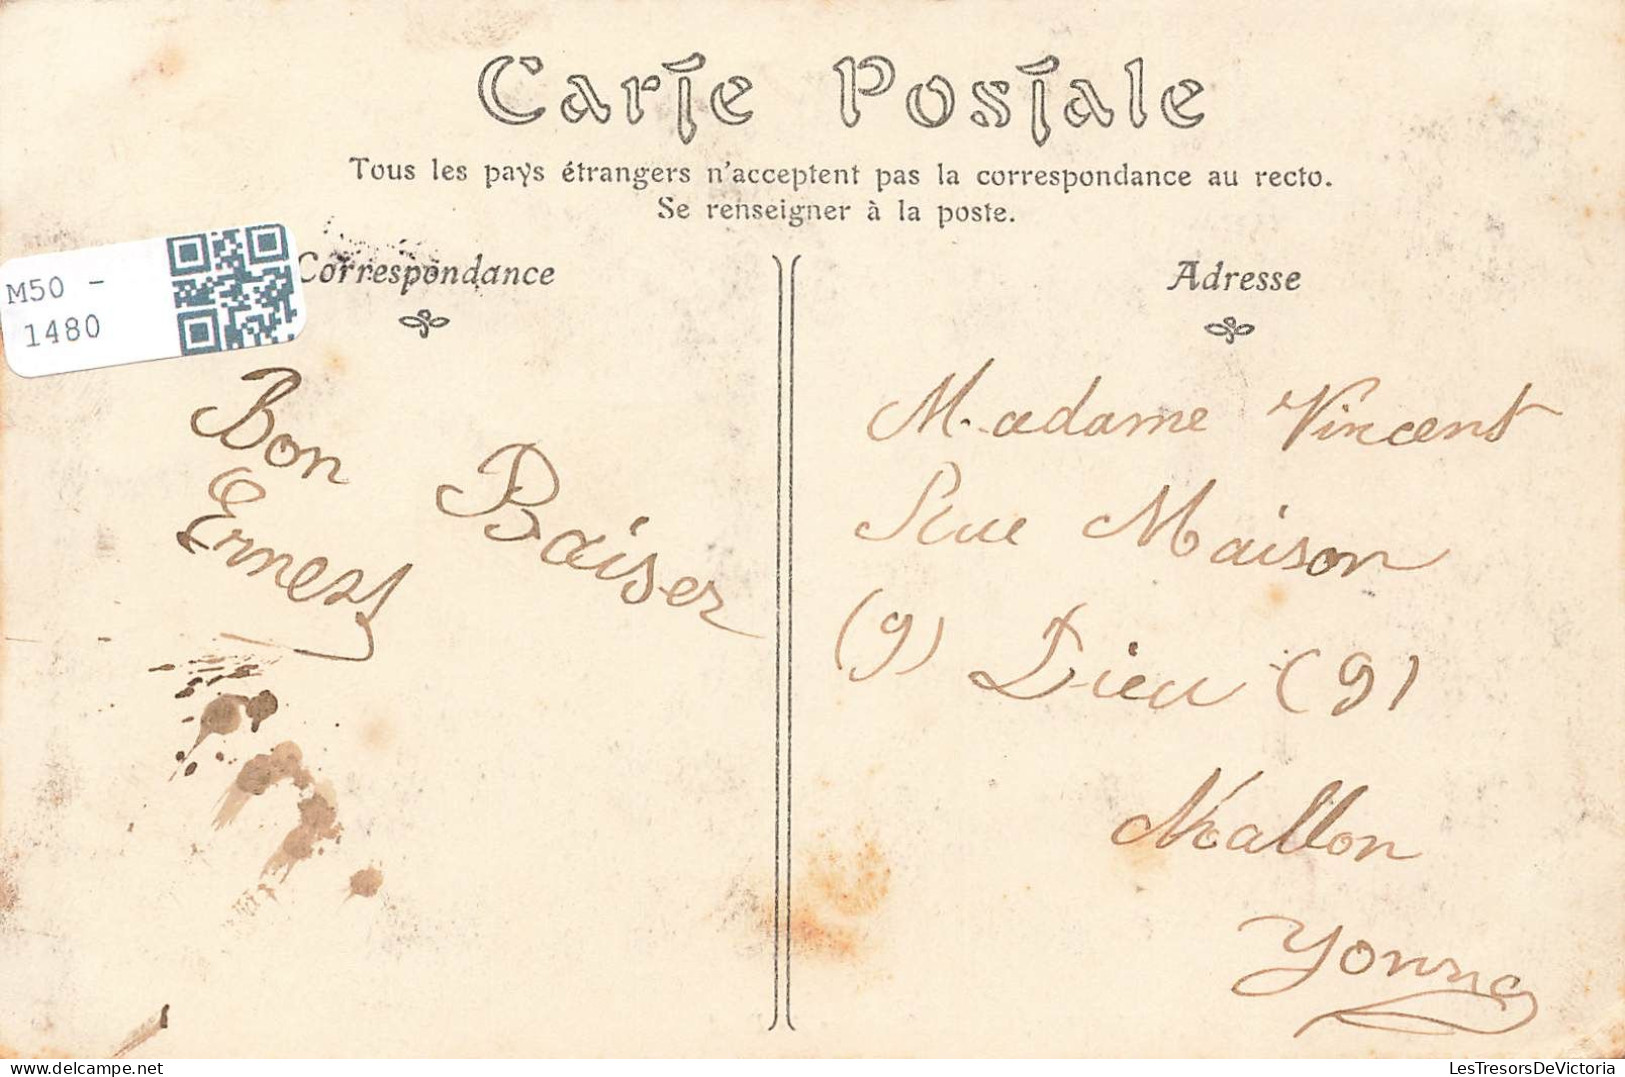 Carte Postale
Tous les pays étrangers n'acceptent pas la correspondance au recto.
Se renseigner à la poste.
M50 -
1480
Correspondance
Bon Baiser
Ernest
Adresse
Madame Vincent
Rue Maison
(9) Dieu (9)
Mallon
Yonne
LesTresorsDeVictoria